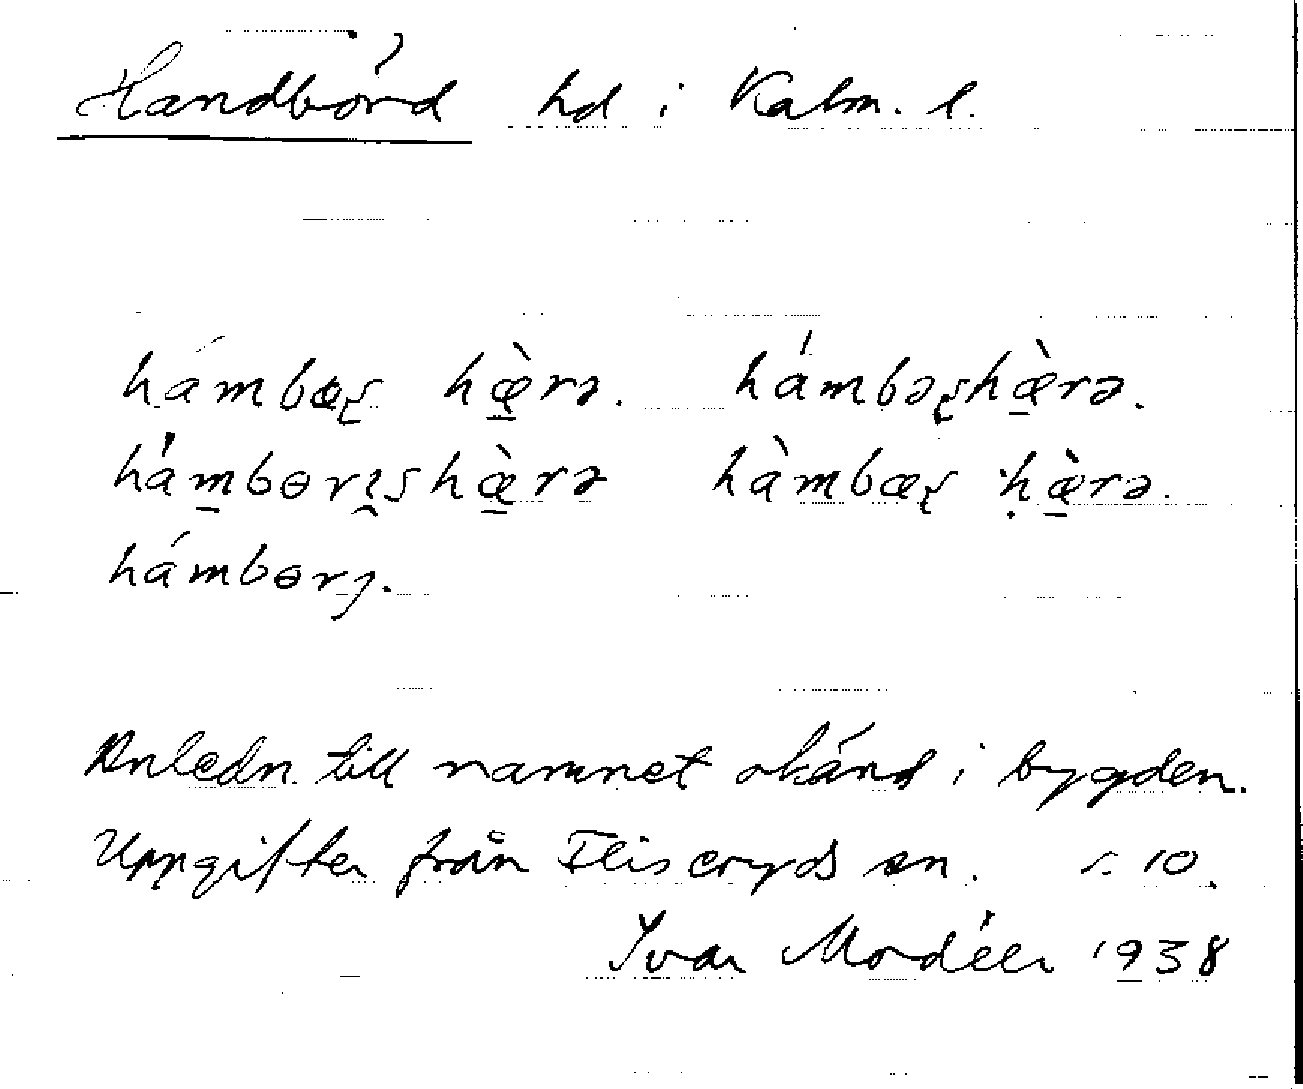 Handbörd hd i Kalm. l.
hámbæʂ hæ̀rə. hámbəʂhæ̀rə.
hámbɵrıshæ̀rə hàmbæʂ hæ̀rə.
hámbɵrȷ.
Anledn. till namnet okänd i bygden.
Uppgifter från Fliseryds sn. s. 10.
Ivar Modéer 1938